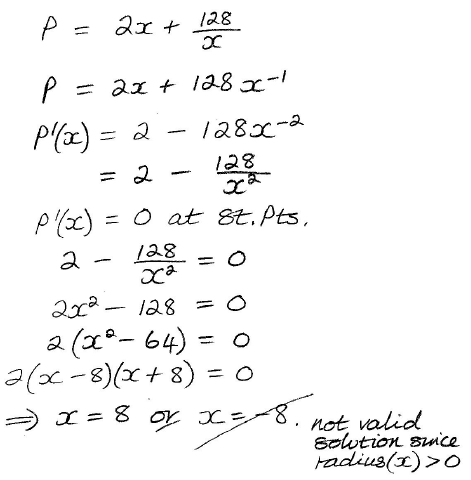 P = 2x + 128/x
P = 2x + 128x⁻¹
P'(x) = 2 − 128x⁻²
= 2 − 128/x²
P'(x) = 0 at St. Pts.
2 − 128/x² = 0
2x² − 128 = 0
2(x² − 64) = 0
2(x − 8)(x + 8) = 0
⇒ x = 8 or x = −8. not valid
solution since
radius(x) > 0